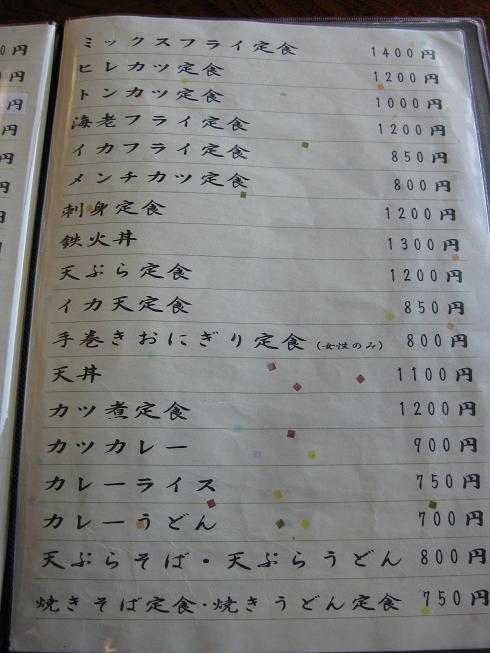 ミックスフライ定食 1400円
ヒレカツ定食 1200円
トンカツ定食 1000円
海老フライ定食 1200円
イカフライ定食 850円
メンチカツ定食 800円
刺身定食 1200円
鉄火丼 1300円
天ぷら定食 1200円
イカ天定食 850円
手巻きおにぎり定食(女性のみ) 800円
天丼 1100円
カツ煮定食 1200円
カツカレー 900円
カレーライス 750円
カレーうどん 700円
天ぷらそば・天ぷらうどん 800円
焼きそば定食・焼きうどん定食 750円